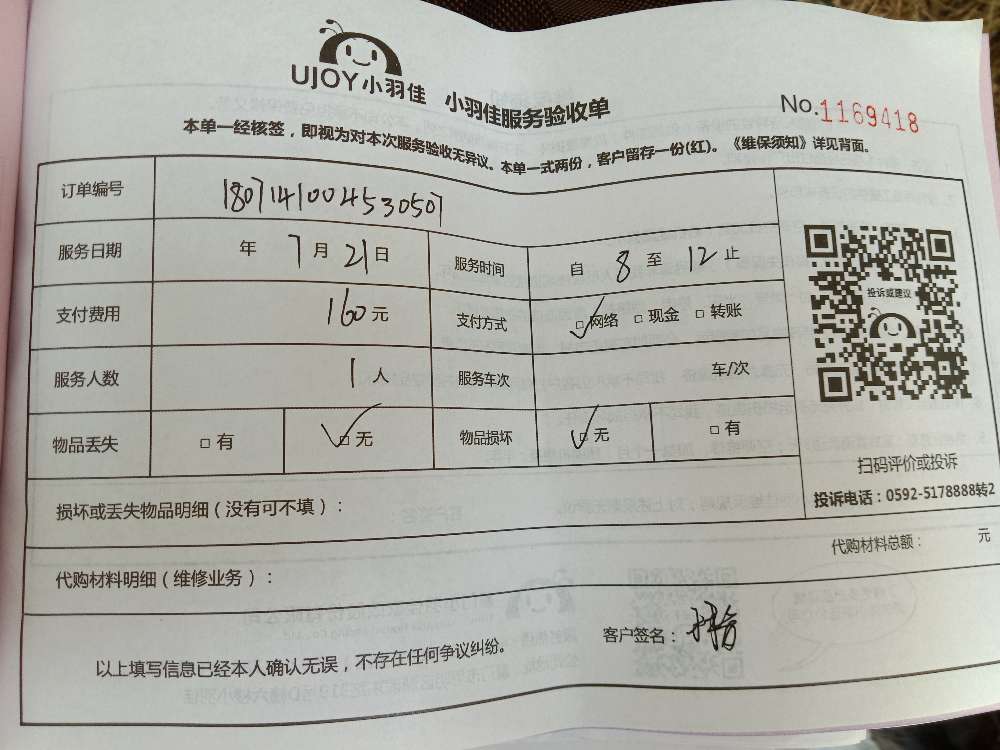 UJOY小羽佳 小羽佳服务验收单
No.1169418
本单一经核签，即视为对本次服务验收无异议、本单一式两份，客户留存一份(红)。《维保须知》详见背面。
订单编号 1807141004530507
服务日期 年 7月21日 服务时间 自 8 至 12 止
投诉或建议
支付费用 160元 支付方式 □网络 □现金 □转账
服务人数 1人 服务车次 车/次
物品丢失 □有 □无 物品损坏 □无 □有
扫码评价或投诉
投诉电话：0592-5178888转2
损坏或丢失物品明细（没有可不填）：
代购材料总额： 元
代购材料明细（维修业务）：
客户签名：
以上填写信息已经本人确认无误，不存在任何争议纠纷。